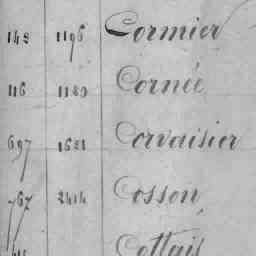 148 1196 Cormier
116 1189 Cornée
697 1681 Corvaisier
767 2414 Cosson
Cottais